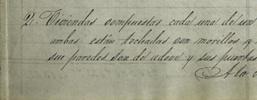 2. Viviendas compuestas cada una de un
ambas están techadas con morillos y
sus paredes son de adove y sus puertas
A la